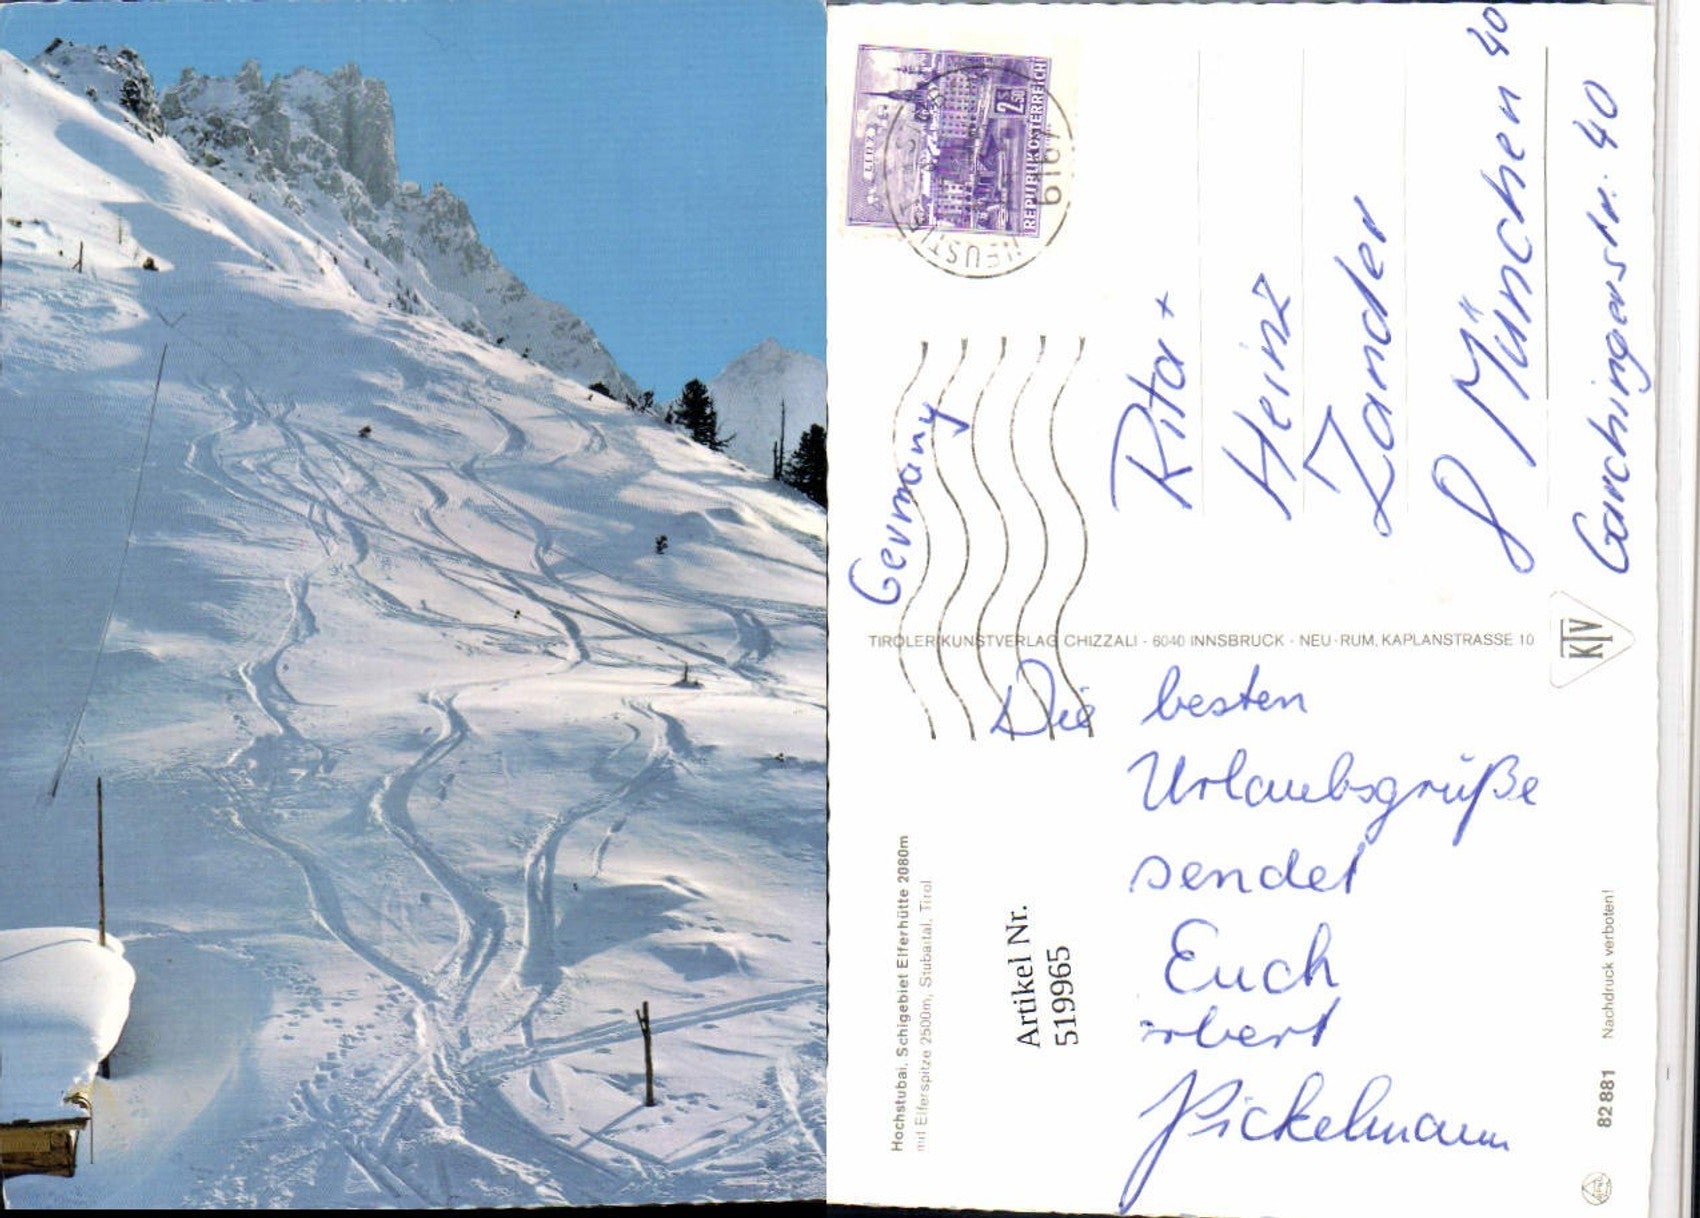 LINZ A.D.
S 2.50
REPUBLIK ÖSTERREICH
Rita +
Heinz
Zander
8 München 40
Garchingerstr. 40
Germany
TIROLER KUNSTVERLAG CHIZZALI - 6040 INNSBRUCK - NEU-RUM, KAPLANSTRASSE 10
KTV
Die besten
Urlaubsgrüße
sendet
Euch
Pickelmann
Hochstubai, Schigebiet Elferhütte 2080m
mit Elferspitze 2500m, Stubaital, Tirol
Artikel Nr.
519965
82 881 Nachdruck verboten!